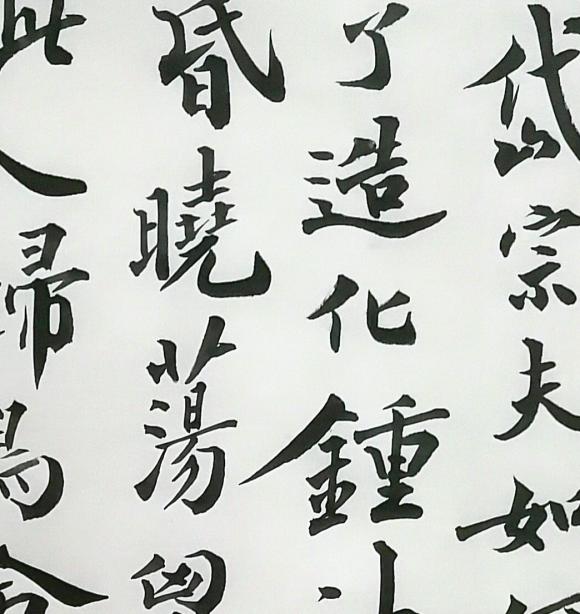 岱宗夫如
了造化鍾
昏曉蕩胷
入歸鳥